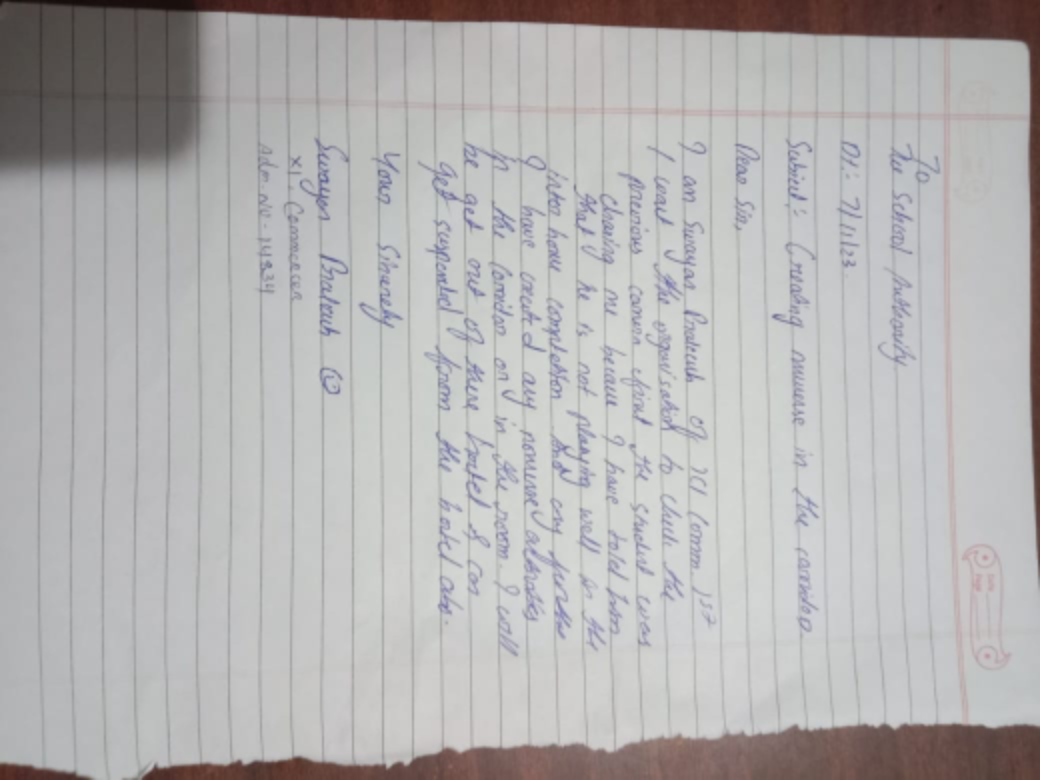 To
The School Authority
Dt:- 7/11/23.
Subject:- Creating nuinense in the corridoo
Dear Sir,
I am Swayan Prakash of XI Comm. 1st
I want the organisation to check the
previous camera first the student was
chasing me because I have told him
that he is not playing well in the
inter house completion And any further
I have created any nonsense activities
in the corridor or in the room. I will
be get out of there hostel & can
get suspended from the hostel also.
Your Sincerely
Swayan Prakash
XI. Commerce
Adm. No - 14834